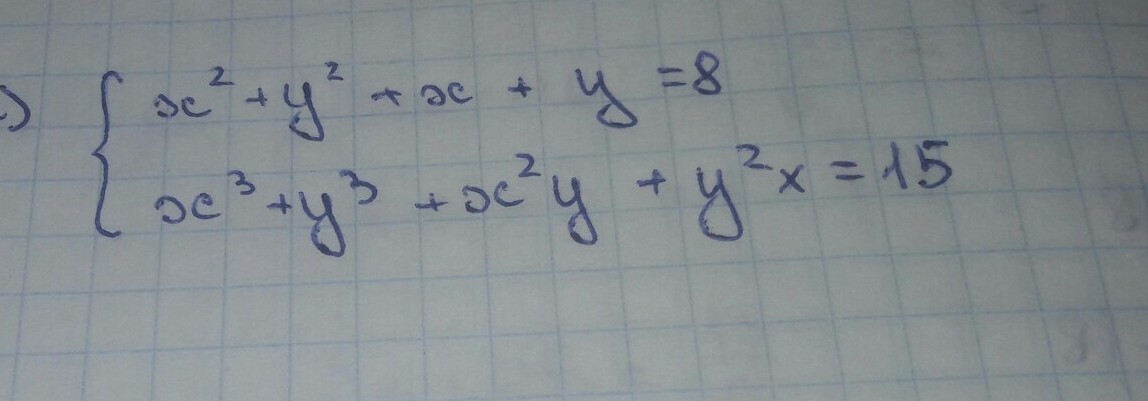 ) { x² + y² + x + y = 8
x³ + y³ + x²y + y²x = 15